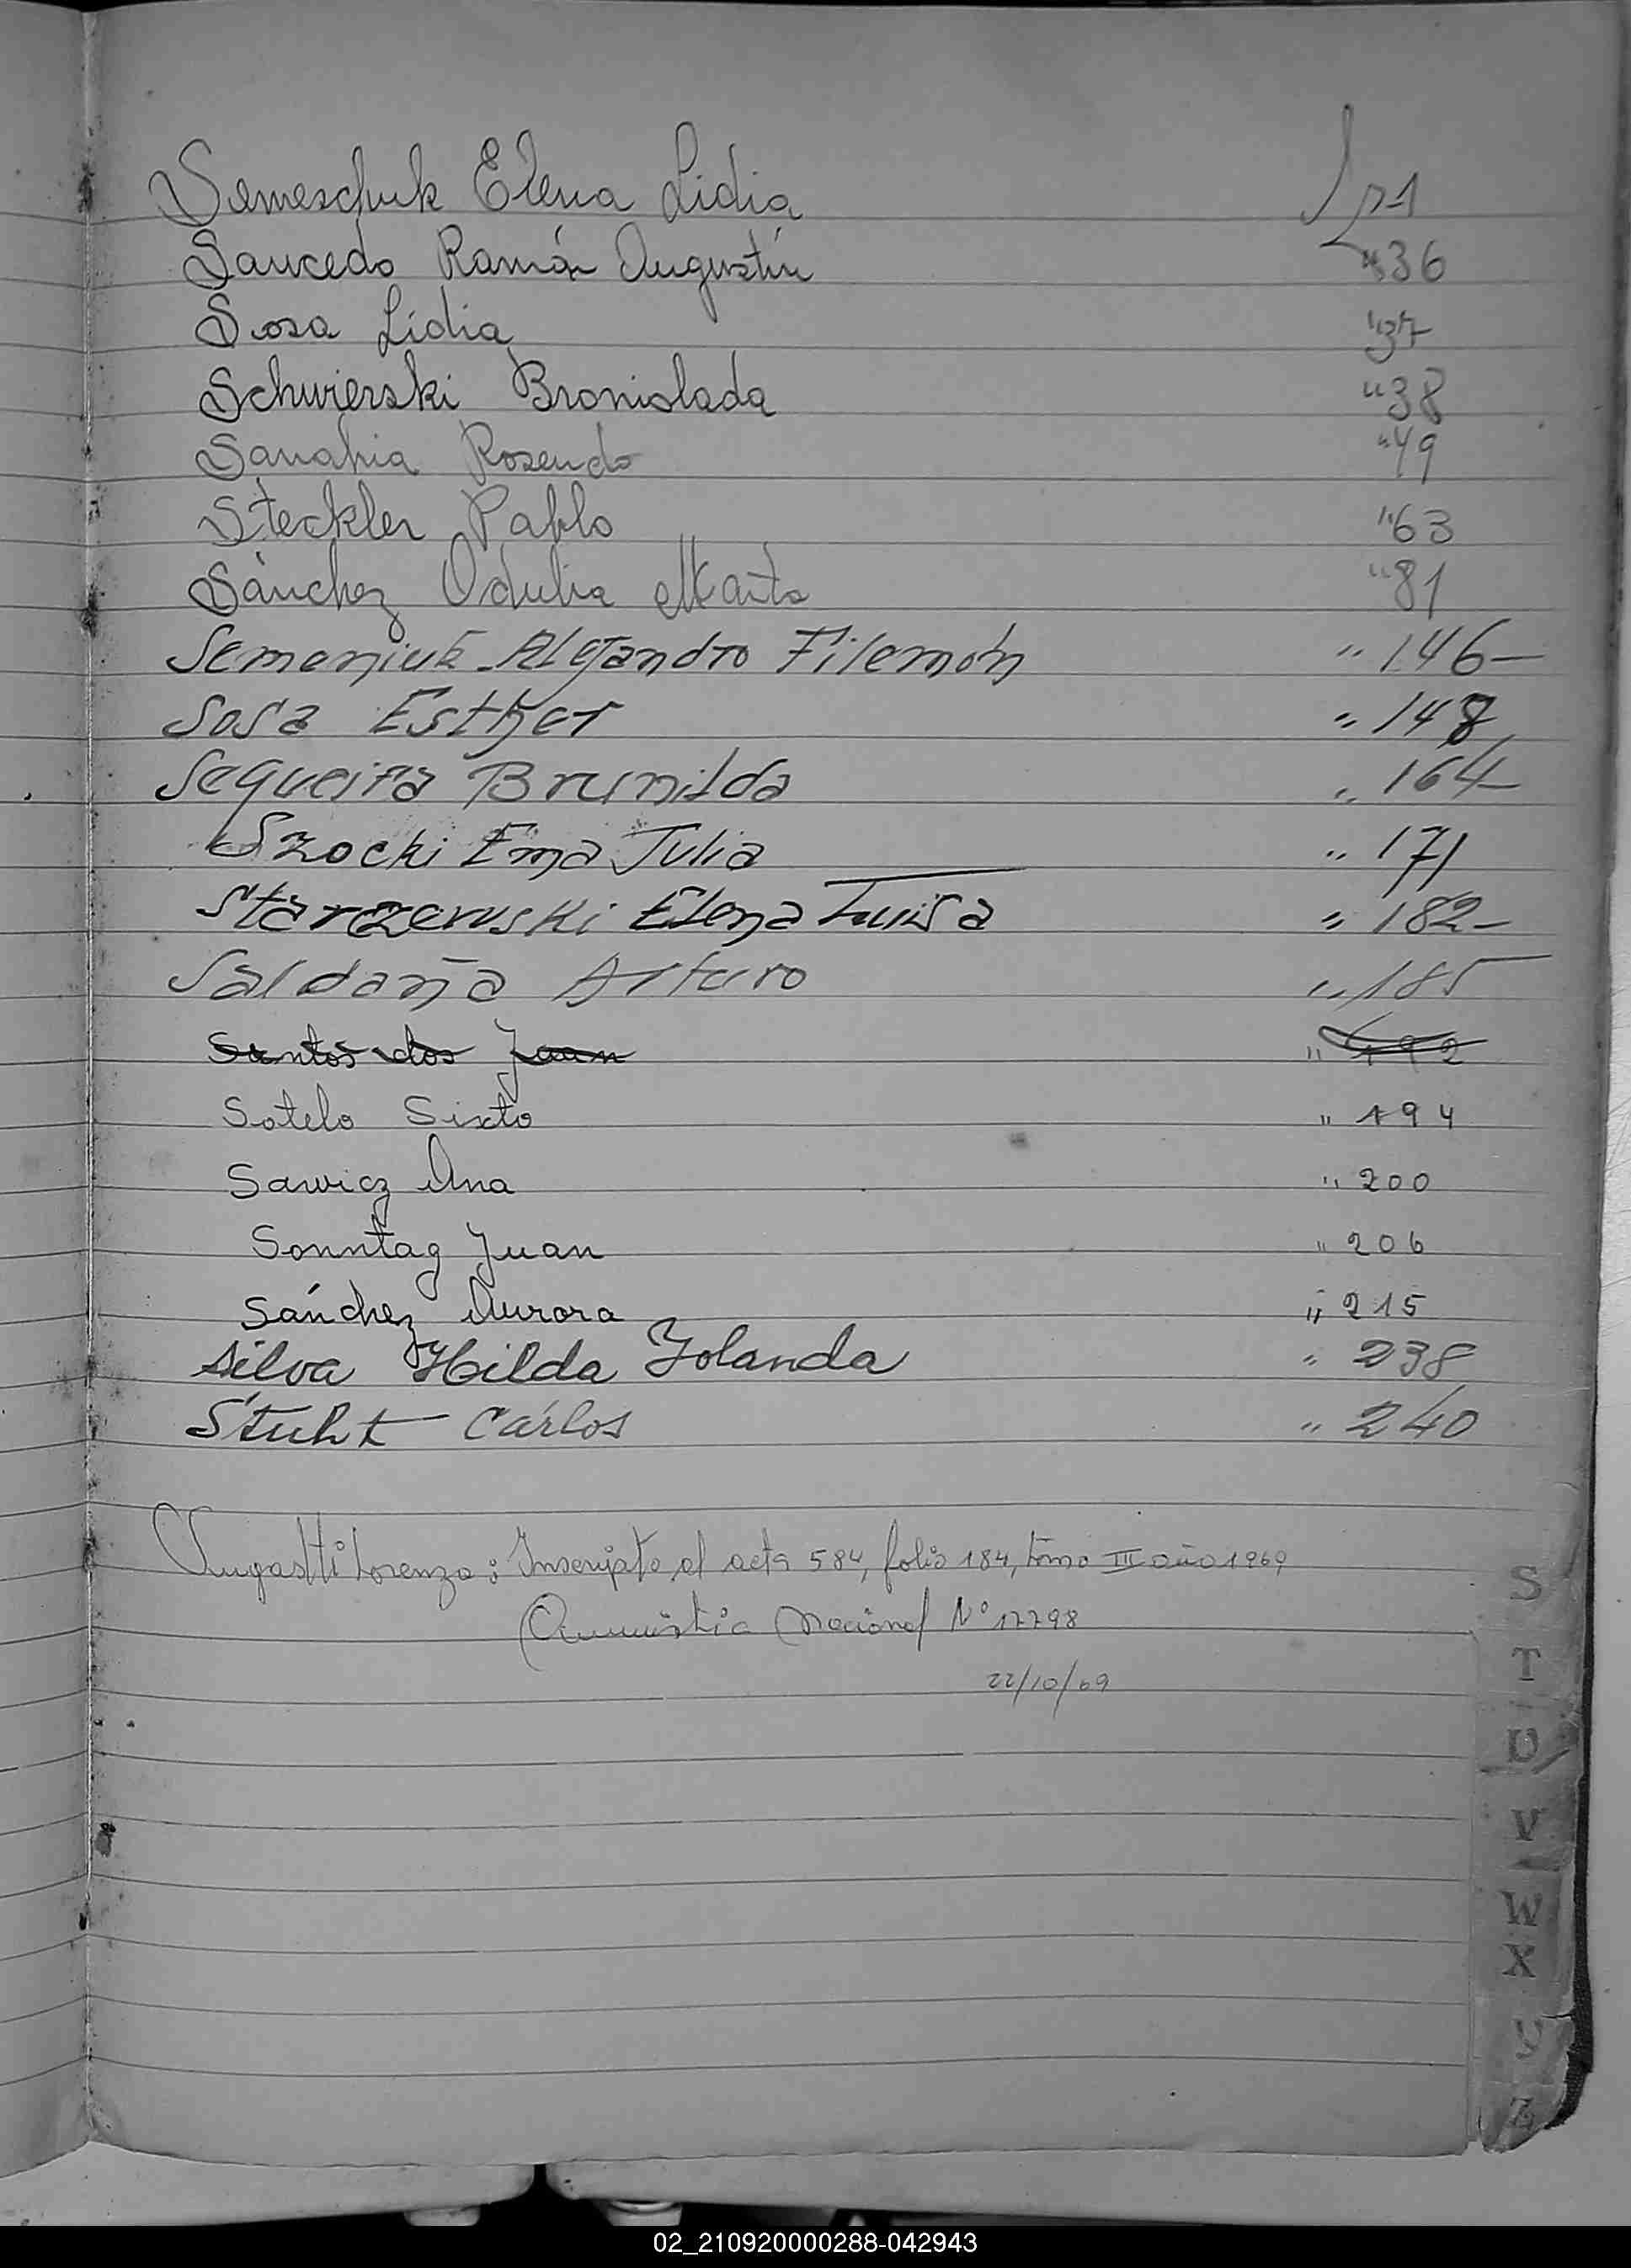 Semeschuk Elena Lidia
Saucedo Ramón Augustín "36
Sosa Lidia "37
Schwierski Bronislada "38
Sanabria Rosendo "49
Steckler Pablo "63
Sánchez Odulia Marta "81
Semeniuk Alejandro Filemón " 146-
Sosa Esther " 148
Sequeira Brunilda " 164-
Szocki Ema Julia " 171
Starzewski Elena Luisa " 182-
Saldaña Arturo " 185
Santos dos Juan " 192
Sotelo Sixto " 194
Sawicz Ana " 200
Sonntag Juan " 206
Sánchez Aurora " 215
Silva Hilda Yolanda " 238
Stuht Carlos " 240
Lorenzo: Inscripto al acta 584, folio 184, tomo III año 1969
Nacional Nº 17798
22/10/69
S
T
U
V
W
X
Y
Z
02_210920000288-042943